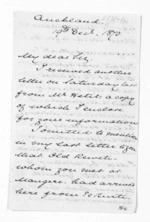 Auckland
19th Decr. 187
My dear Sir
I received another
letter on Saturday last
from Mr. a copy
of which I enclose
for your information
I omitted to mention
in my last letter to you
that Old Rewiti
whom you met at
Mangere had arrived
here from